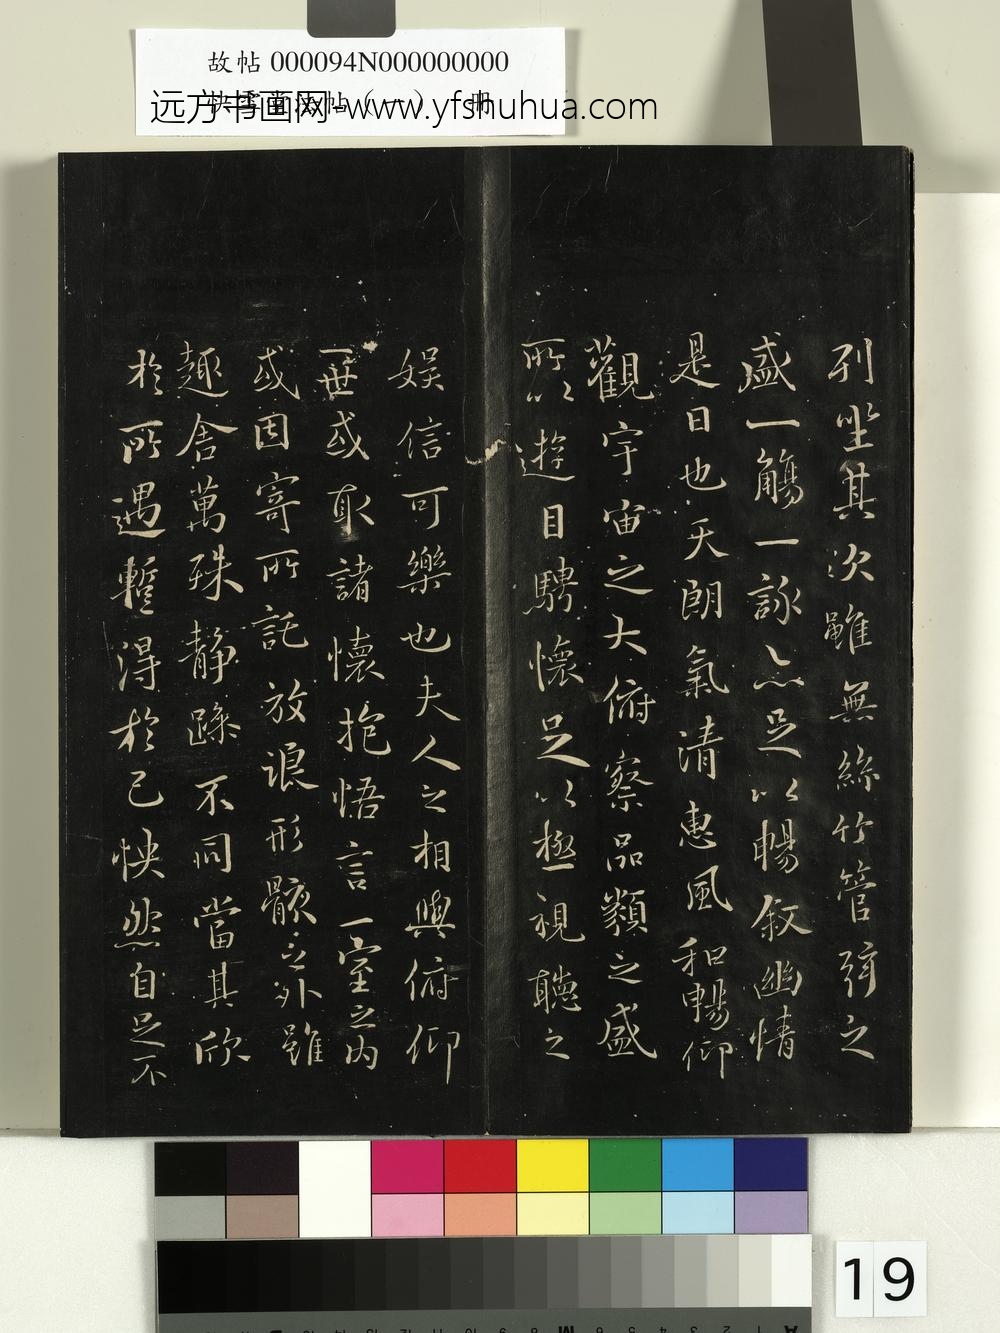 故帖 000094N000000000
远方书画网-www.yfshuhua.com
列坐其次雖無絲竹管弦之
盛一觴一詠亦足以暢敘幽情
是日也天朗氣清惠風和暢仰
觀宇宙之大俯察品類之盛
所以遊目騁懷足以極視聽之
娛信可樂也夫人之相與俯仰
一世或取諸懷抱悟言一室之內
或因寄所託放浪形骸之外雖
趣舍萬殊靜躁不同當其欣
於所遇暫得於己怏然自足不
19